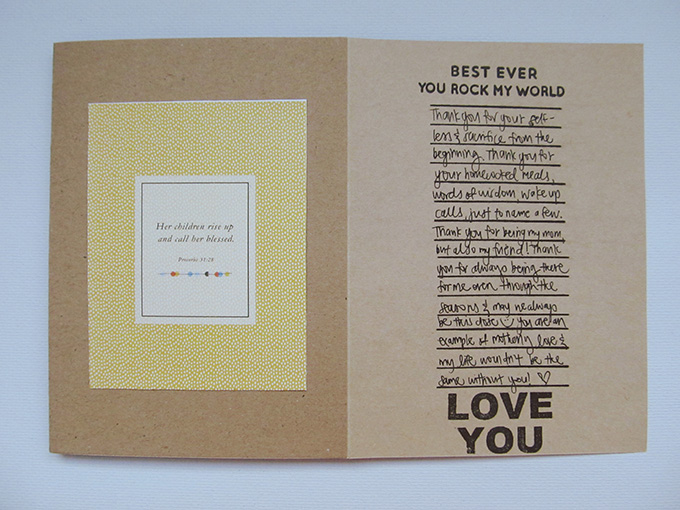 Her children rise up
and call her blessed.
Proverbs 31:28
BEST EVER
YOU ROCK MY WORLD
Thank you for your self-
less & sacrifice from the
beginning. Thank you for
your homecooked meals,
words of wisdom, wake up
calls, just to name a few.
Thank you for being my mom,
but also my friend! Thank
you for always being there
for me even through the
seasons & may we always
be this close you are an
example of motherly love &
my life wouldn't be the
same without you!
LOVE
YOU